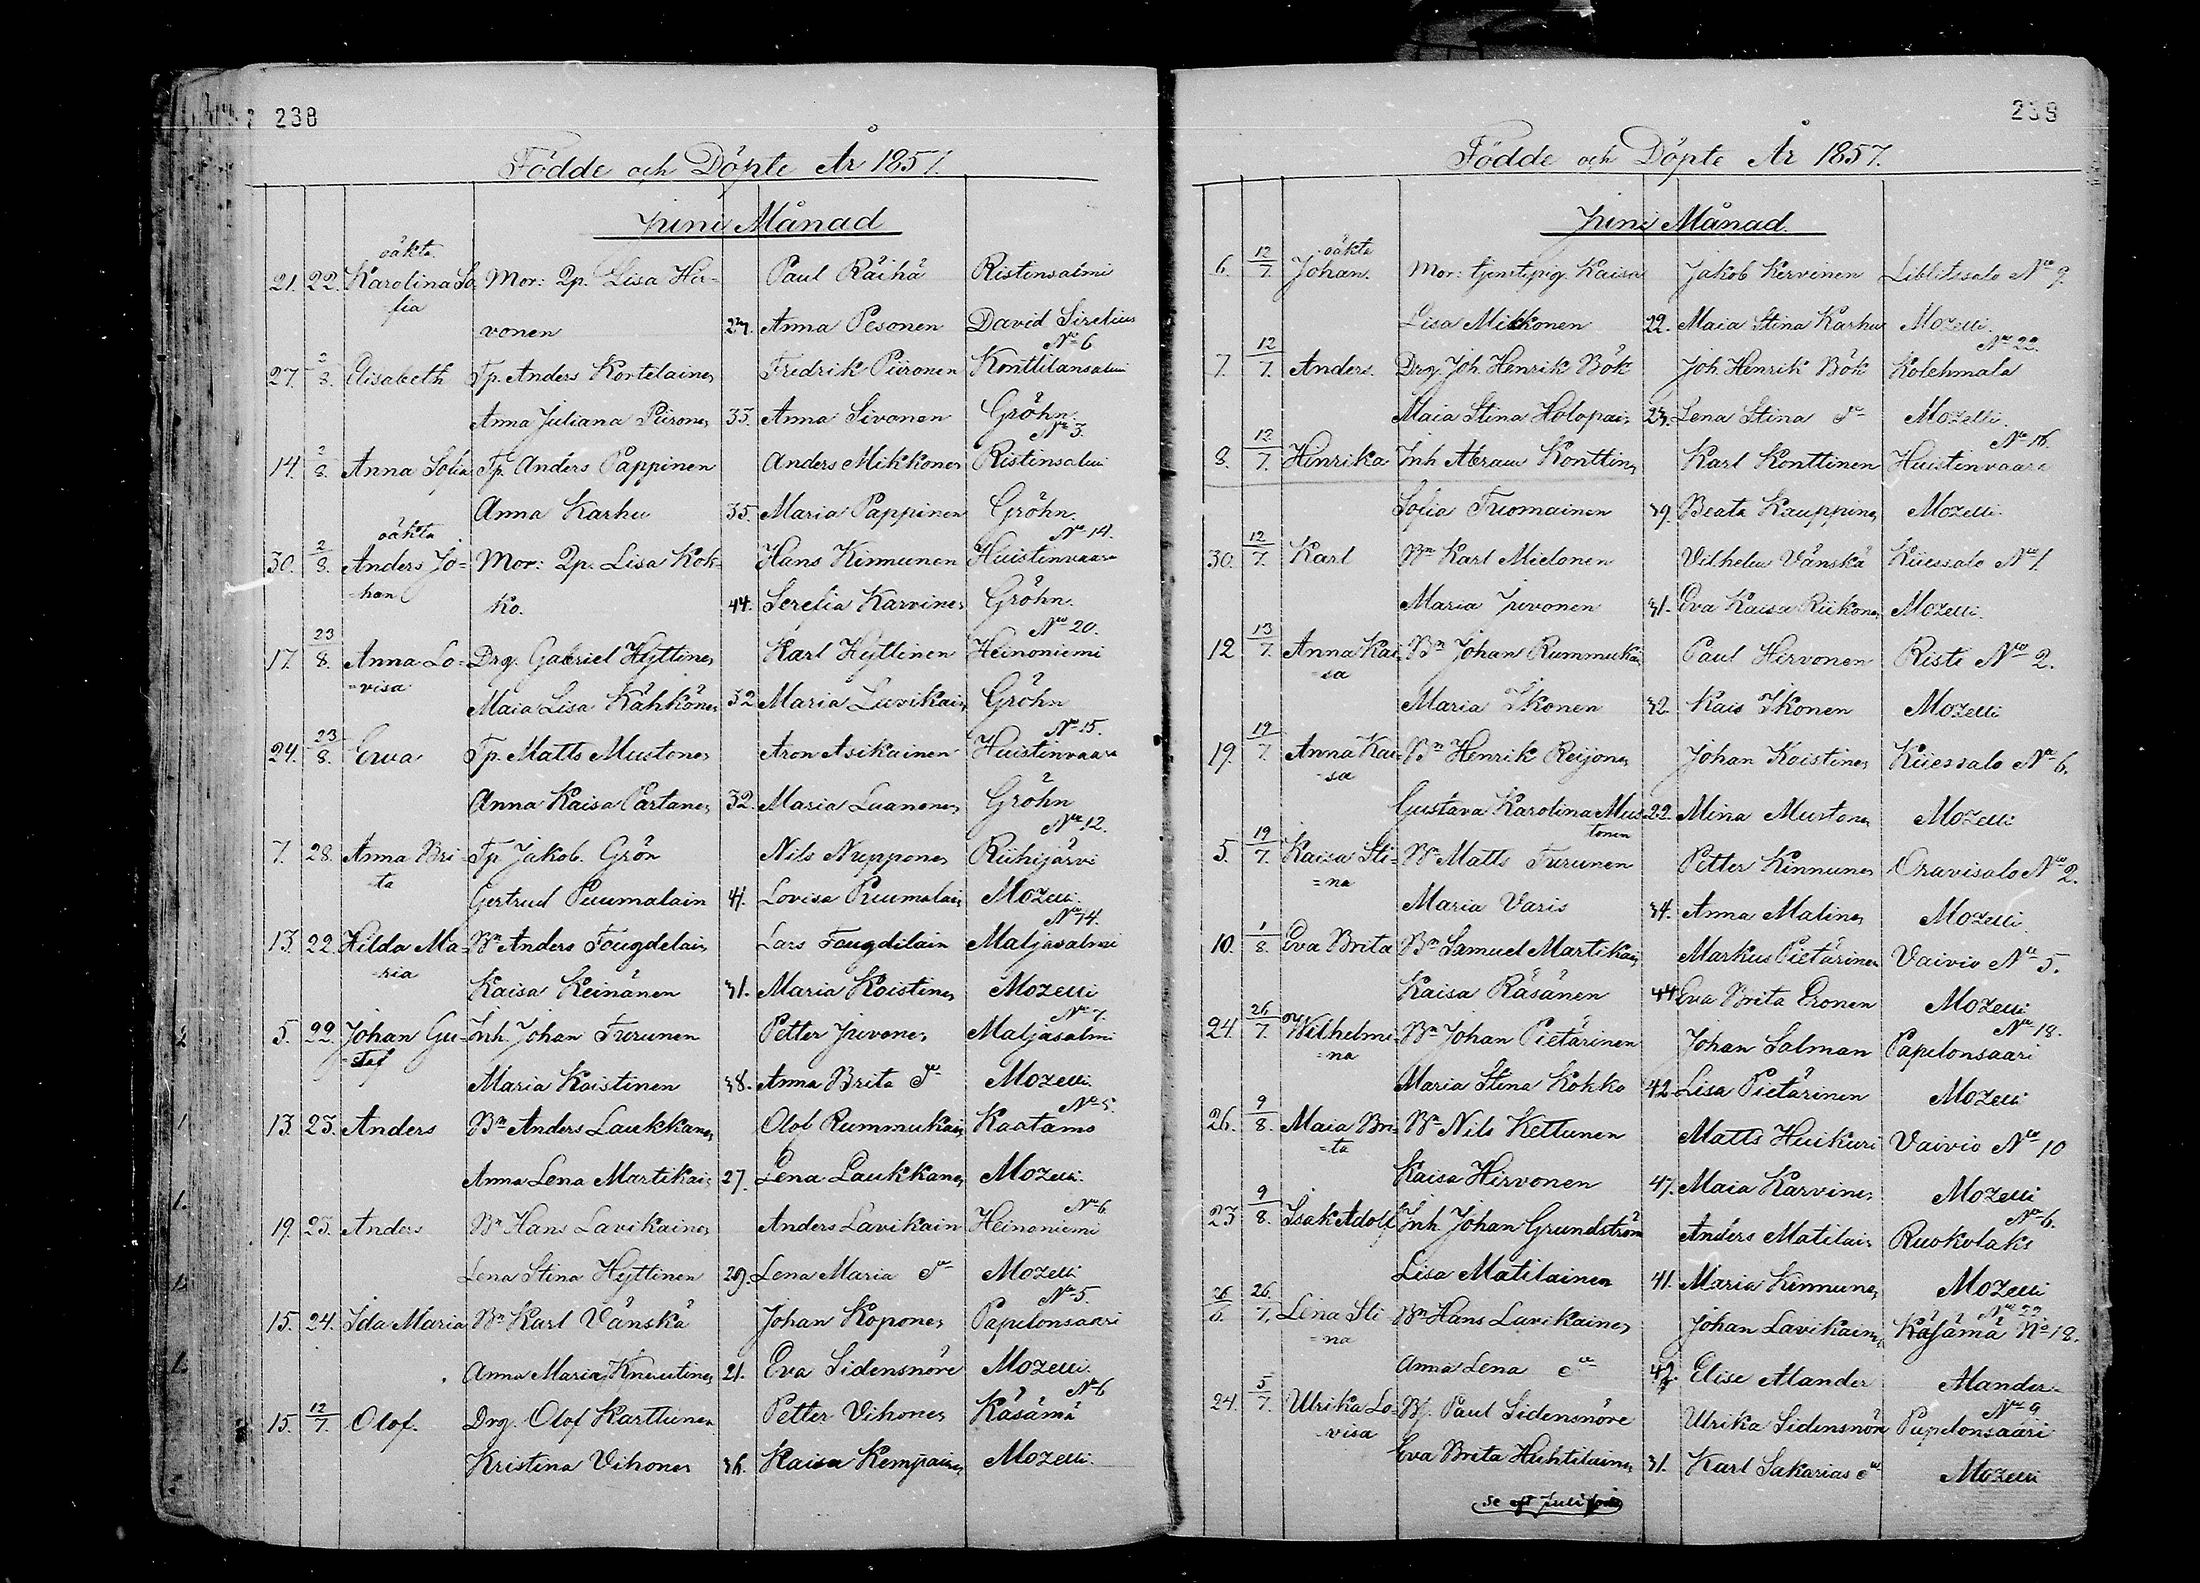 238
Födde och Döpte År 1857.
Juni Månad
oäkta
21. 22. Karolina So Mor: Qp. Lisa Hir- Paul Räihä Ristinsalmi
fia vonen 27. Anna Pesonen David Sirelius
No 6
27. 2/8. Elisabeth Tp. Anders Kontelainen Fredrik Piironen Konttilansalmi
Anna Juliana Piironen 33. Anna Sivonen Gröhn.
No 3.
14. 2/8. Anna Sofia Tp. Anders Pappinen Anders Mikkonen Ristinsalmi
Anna Karhu 35. Maria Pappinen Gröhn.
oäkta No 14.
30. 2/8. Anders Jo= Mor: Qp. Lisa Kok- Hans Kinnunen Huistinvaara
=han ko. 44. Serefia Karvinen Gröhn.
No 20.
17. 23/8. Anna Lo- Drg. Gabriel Hyttinen Karl Hyttinen Heinoniemi
=visa Maia Lisa Kähkönen 32 Maria Lavikain Gröhn
No 15.
24. 23/8. Ewa Tp. Matts Mustonen Aron Asikainen Huistinvaara
Anna Kaisa Partanen 32. Maria Luanonen Gröhn
No 12.
7. 28. Anna Bri- Tp Jakob. Grön Nils Nupponen Riihijärvi
-ta Gertrud Puumalain 41. Lovisa Puumalain Mozelli.
No 14.
13. 22. Hilda Ma- Bn Anders Fougdelain Lars Fougdilain Maljasalmi
-ria Kaisa Keinänen 31. Maria Koistinen Mozelli
No 7.
5. 22. Johan Gu- Inh. Johan Turunen Petter Juvonen Maljasalmi
=staf Maria Koistinen 38. Anna Brita do Mozelli.
No 5.
13. 23. Anders Bn Anders Laukkanen Olof Rummukain Kaatamo
Anna Lena Martikain 27. Lena Laukkanen Mozelli.
No 6
19. 23. Anders Bn Hans Lavikainen Anders Lavikain Heinoniemi
Lena Stina Hyttinen 29. Lena Maria do Mozelli
No 5.
15. 24. Ida Maria Bn Karl Vänskä Johan Koponen Papelonsaari
Anna Maria Knuutinen 21. Eva Sidensnöre Mozelli.
No 6
15. 12/7. Olof. Drg. Olof Karttunen Petter Vihonen Käsämä
Kristina Vihonen 36. Kaisa Kempainen Mozelli.
239
Födde och Döpte År 1857.
Juni Månad.
oäkta
6. 12/7. Johan. Mor: tjenstepig. Kaisa Jakob Kervinen Liblitsalo No 9.
Lisa Mikkonen 22. Maia Stina Karhu Mozelli.
No 22.
7. 12/7. Anders. Drg. Joh. Henrik Bök Joh. Henrik Bök Kolehmala
Maia Stina Holopain 23. Lena Stina do Mozelli.
No 16.
8. 12/7. Henrika Inh Abram Konttin Karl Konttinen Huistenvaara
Sofia Tuomainen 39. Beata Kauppinen Mozelli.
30. 12/7. Karl Bn Karl Mielonen Vilhelm Vänskä Kiiessalo No 1.
Maria Juvonen 31. Eva Kaisa Riikonen Mozelli.
12 13/7. Anna Kai- Bn Johan Rummukain Paul Hirvonen Riste No 2.
=sa Maria Ikonen 32. Kais Ikonen Mozelli
19. 19/7. Anna Kai- Bn Henrik Reijonen Johan Koistinen Kiiessalo No 6.
-sa Gustava Karolina Mus 22. Mina Mustonen Mozelli
tonen
5. 19/7. Kaisa Sti= Bn Matts Turunen Petter Kinnunen Oravisalo No 2.
=na Maria Varis 34. Anna Malinen Mozelli.
10. 1/8. Eva Brita Bn Samuel Martikain Markus Pietärinen Vaivio No 5.
Kaisa Räsänen 44 Eva Brita Eronen Mozelli
No 18.
24. 26/7. Wilhelmi- Bn Johan Pietärinen Johan Salman Papelonsaari
=na Maria Stina Kokko 42. Lisa Pietärinen Mozelli
26. 9/8. Maia Bri- Bn Nils Kettunen Matts Huikuri Vaivio No 10
=ta Kaisa Hirvonen 47. Maia Karvinen Mozelli
No 6.
23 9/8. Isak Adolf Inh. Johan Grundström Anders Matilain Ruokolaks
Lisa Matilainen 41. Maria Kinnunen Mozelli
No 22
26/6. 26/7. Lena Sti Bn Hans Lavikainen Johan Lavikainen Käsämä No 18.
=na Anna Lena do 42. Elise Mander Mander
No 9
24. 5/7. Ulrika Lo- Bf. Paul Sidensnöre Ulrika Sidensnöre Papelonsaari
-visa Eva Brita Huhtilainen 31. Karl Sakarias do Mozelli
se eft Juli